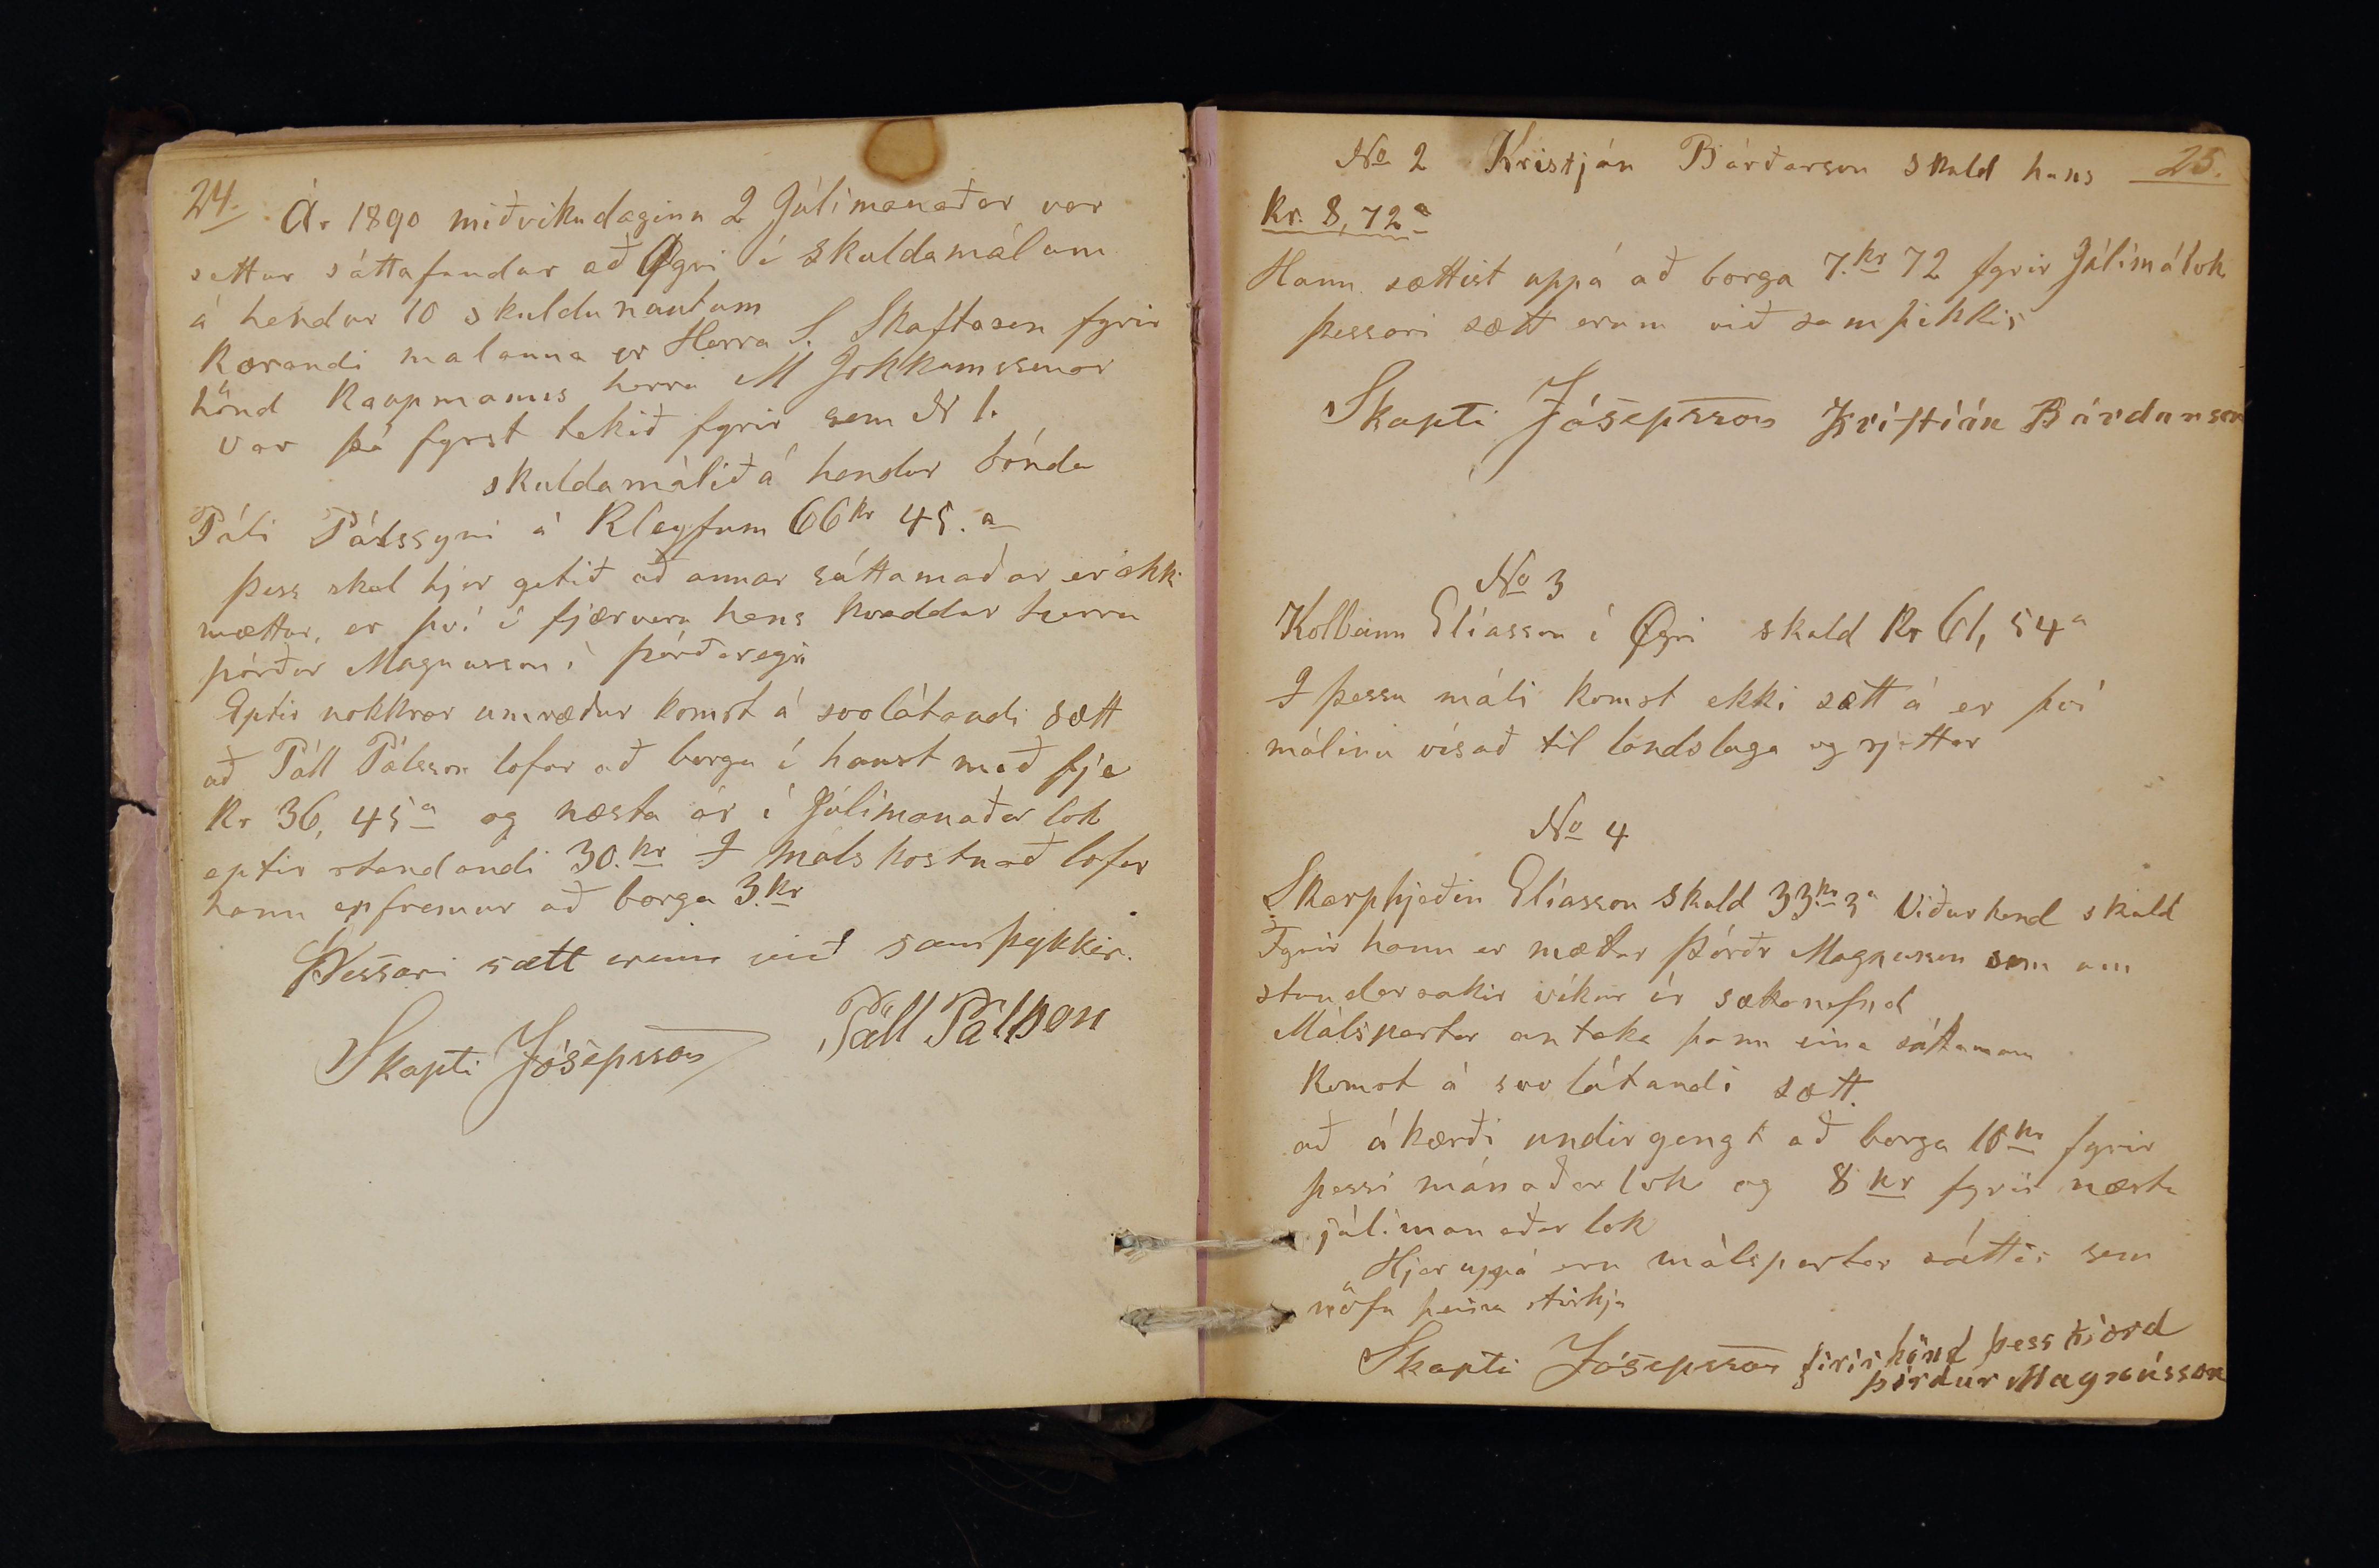 24.
Ár 1890 miðvikudaginn 2 Júlímanaðar var
settur sáttafundur að Ögri í skuldamálum
á hendur 10 skuldunautum
Kærandi malanna er Herra S. Skaftason fyrir
hönd Kaupmanns herra M Jokkumssonar
var þá fyrst tekið fyrir sem N 1.
skuldamálið á hendur bónda
Páli Pálssyni á Kleyfum 66 kr 45. a
Þess skal hjer getið að annar sáttamaðar er ekki
mættur, er því í fjærveru hans kvaddur herra
Þórður Magnusson í Þórðaregri
Eptir nokkrar umræður komst á svolátandi sætt
að Páll Pálsson lofar að borga í haust með fje
Kr 36, 45 a og næsta ár í Júlímanaðar lok
eptir standandi 30. kr I máls kostnað lofar
hann enfremur að borga 3. kr
Þessari sætt erum við samþykkir.
Skapti Jósepsson Páll Pálsson
25.
No 2 Kristján Bárðarson skuld hans
Kr. 8, 72 a
Hann sættist uppá að borga 7. kr 72 fyrir Júlímálok
þessari sætt erum við samþikkir
Skapti Jósepsson Kristián Bárdarson
No 3
Kolbeinn Elíasson í Ögri skuld Kr 61, 54 a
I þessu máli komst ekki sætt á er því
málinu vísað til landslaga og rjettar
No 4
Skarphjeðin Elíasson skuld 33 kr 3 a Viðurkend skuld
Fyrir hann er mættur Þórðr Magnusson sem um
stundarsakir víkur úr sættanefnd
Málspartar antaka þann eina sáttamann
Komst á svo látandi sætt.
að ákærði undirgengt að borga 10 kr fyrir
þessi mánaðar lok og 8 kr fyrir næstu
júlímanaðar lok
Hjer uppá eru málspartar sáttir sem
nöfn þeirra stirkja
Skapti Jósepsson firir hönd þess kiærd
Þórdur Magnússon